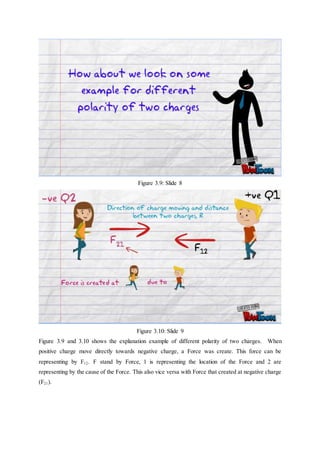 How about we look on some
example for different
polarity of two charges
POWTOON
Figure 3.9: Slide 8
-ve Q2
+ve Q1
Direction of charge moving and distance
between two charges, R
F21
F12
Force is created at
due to
CREATED USING
POWTOON
Figure 3.10: Slide 9
Figure 3.9 and 3.10 shows the explanation example of different polarity of two charges. When
positive charge move directly towards negative charge, a Force was create. This force can be
representing by F12. F stand by Force, 1 is representing the location of the Force and 2 are
representing by the cause of the Force. This also vice versa with Force that created at negative charge
(F21).